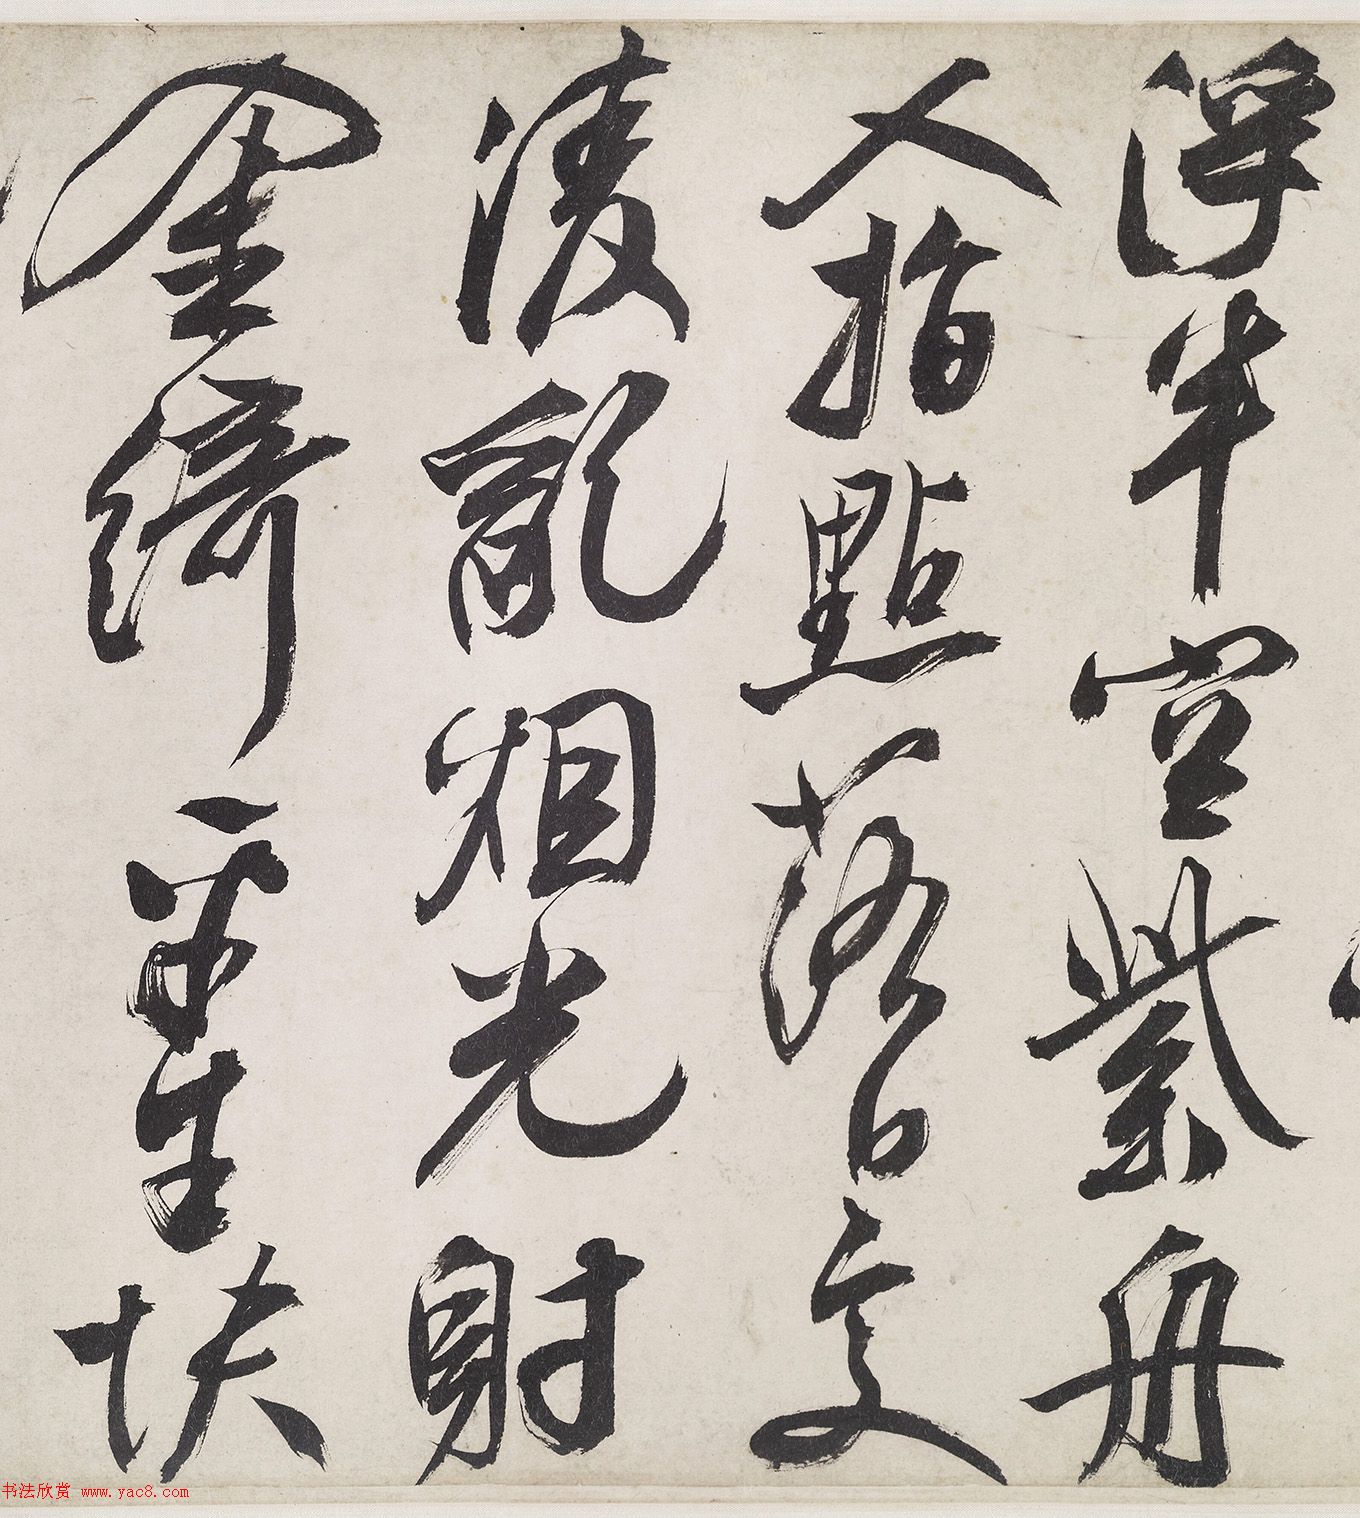 浮半空紫舟
人指點落日交
凌亂相光射
金綺平生快
书法欣赏 www.yac8.com